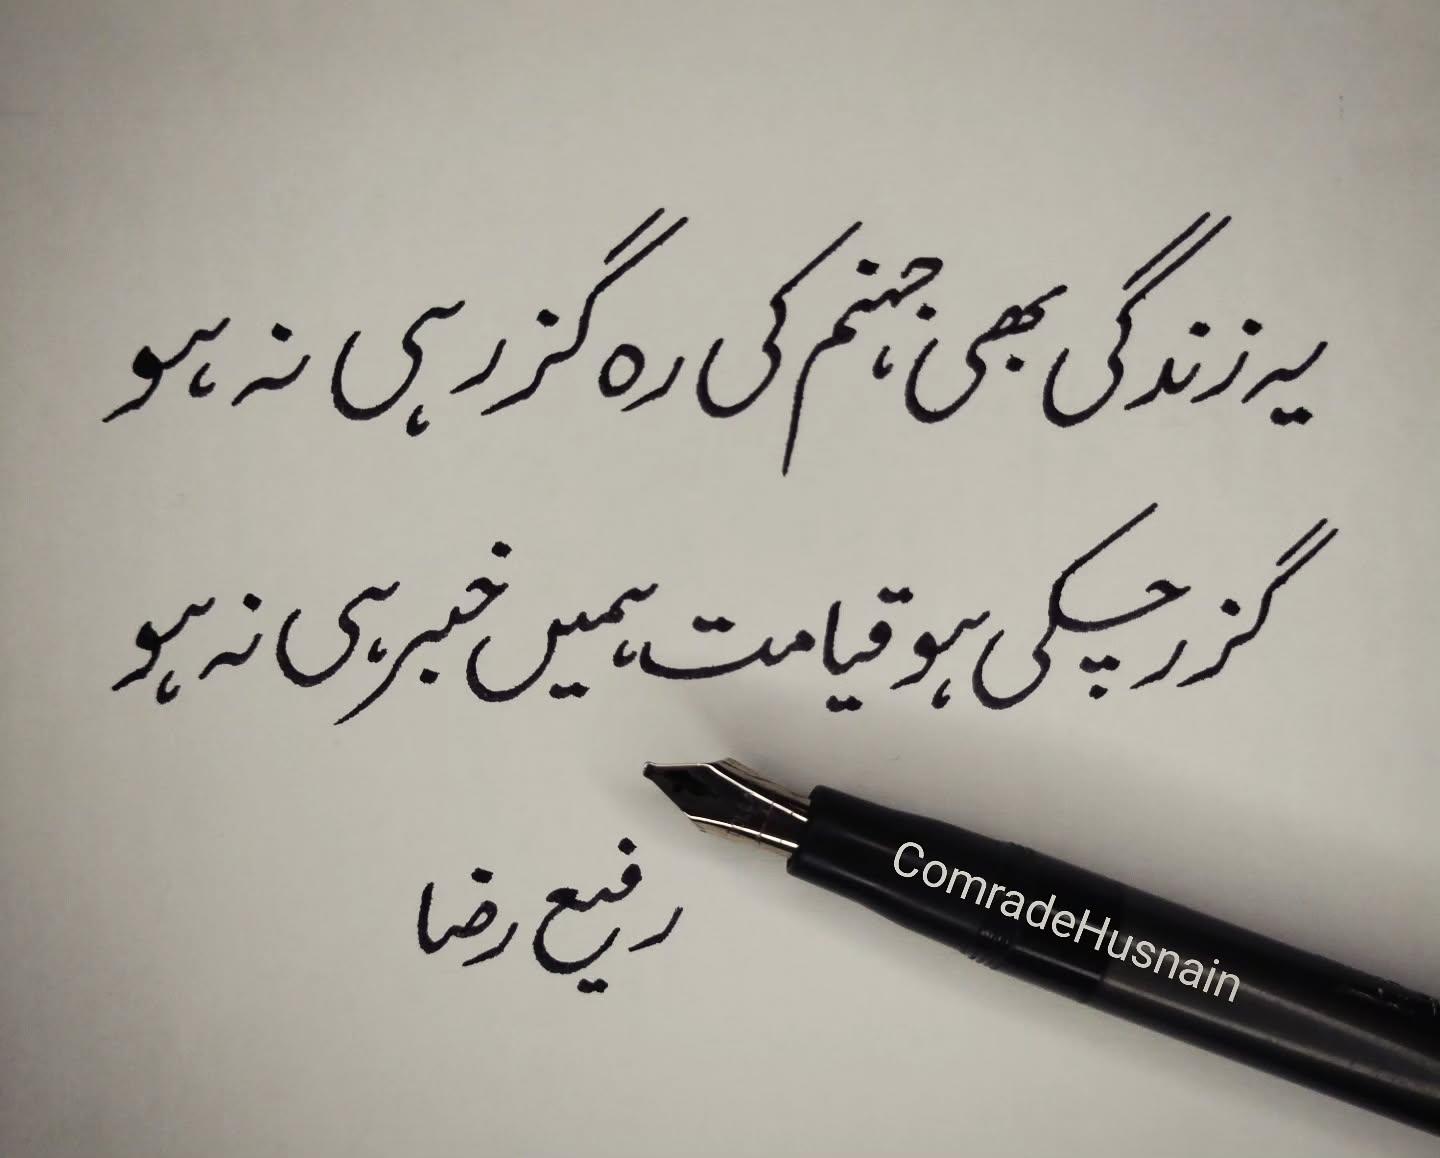 یہ زندگی بھی جہنم کی رہ گزر ہی نہ ہو
گزر چکی ہو قیامت ہمیں خبر ہی نہ ہو
رفیع رضا
ComradeHusnain